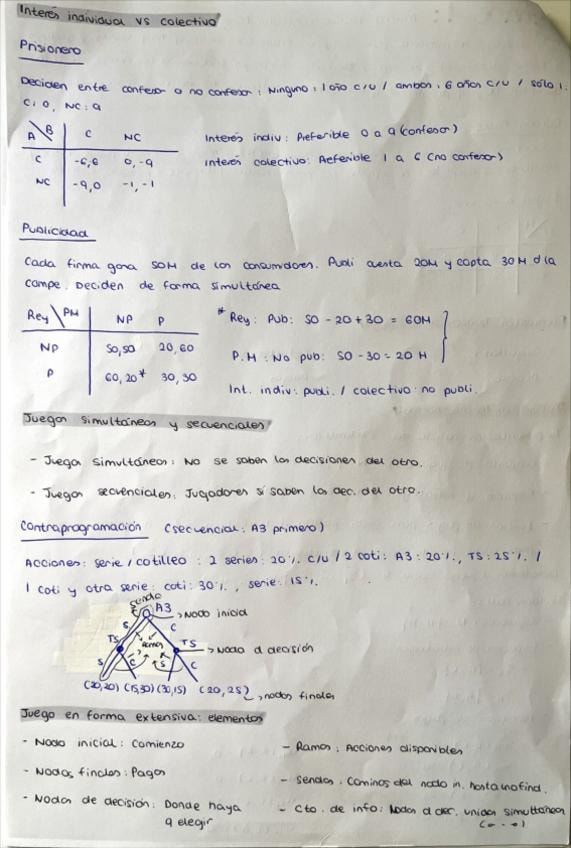 Interés individual vs colectivo
Prisionero
Deciden entre confesar o no confesar: Ninguno: 1 año c/u / ambos: 6 años c/u / sólo 1:
C: 0, NC: 9
A \ B C NC
C -6,6 0,-9
NC -9,0 -1,-1
Interés indiv: Preferible 0 a 9 (confesar)
Interés colectivo: Preferible 1 a 6 (no confesar)
Publicidad
Cada firma gana 50M de los consumidores. Publi cuesta 20M y capta 30M d la
compe. Deciden de forma simultánea
Rey \ PM NP P
NP 50,50 20,60
P 60,20* 30,30
* Rey: Pub: 50 - 20 + 30 = 60M
P.M: No pub: 50 - 30 = 20 M
Int. indiv: publi. / colectivo: no publi.
Juegos simultáneos y secuenciales
- Juegos simultáneos: No se saben las decisiones del otro.
- Juegos secuenciales: Jugadores sí saben las dec. del otro.
Contraprogramación (secuencial: A3 primero)
Acciones: serie / cotilleo: 2 series: 20% c/u / 2 coti: A3: 20%, T5: 25% /
1 coti y otra serie: coti: 30%, serie: 15%.
senda
A3 → Nodo inicial
S C
T5 Ramas T5 → Nodo d decisión
S C S C
(20,20) (15,30) (30,15) (20,25) → nodos finales
Juego en forma extensiva: elementos
- Nodo inicial: Comienzo
- Nodos finales: Pagos
- Nodos de decisión: Donde haya
q elegir
- Ramas: Acciones disponibles
- Sendas: Caminos del nodo in. hasta uno final.
- Cto. de info: Nodos d dec. unidos simultáneos
(o--o)